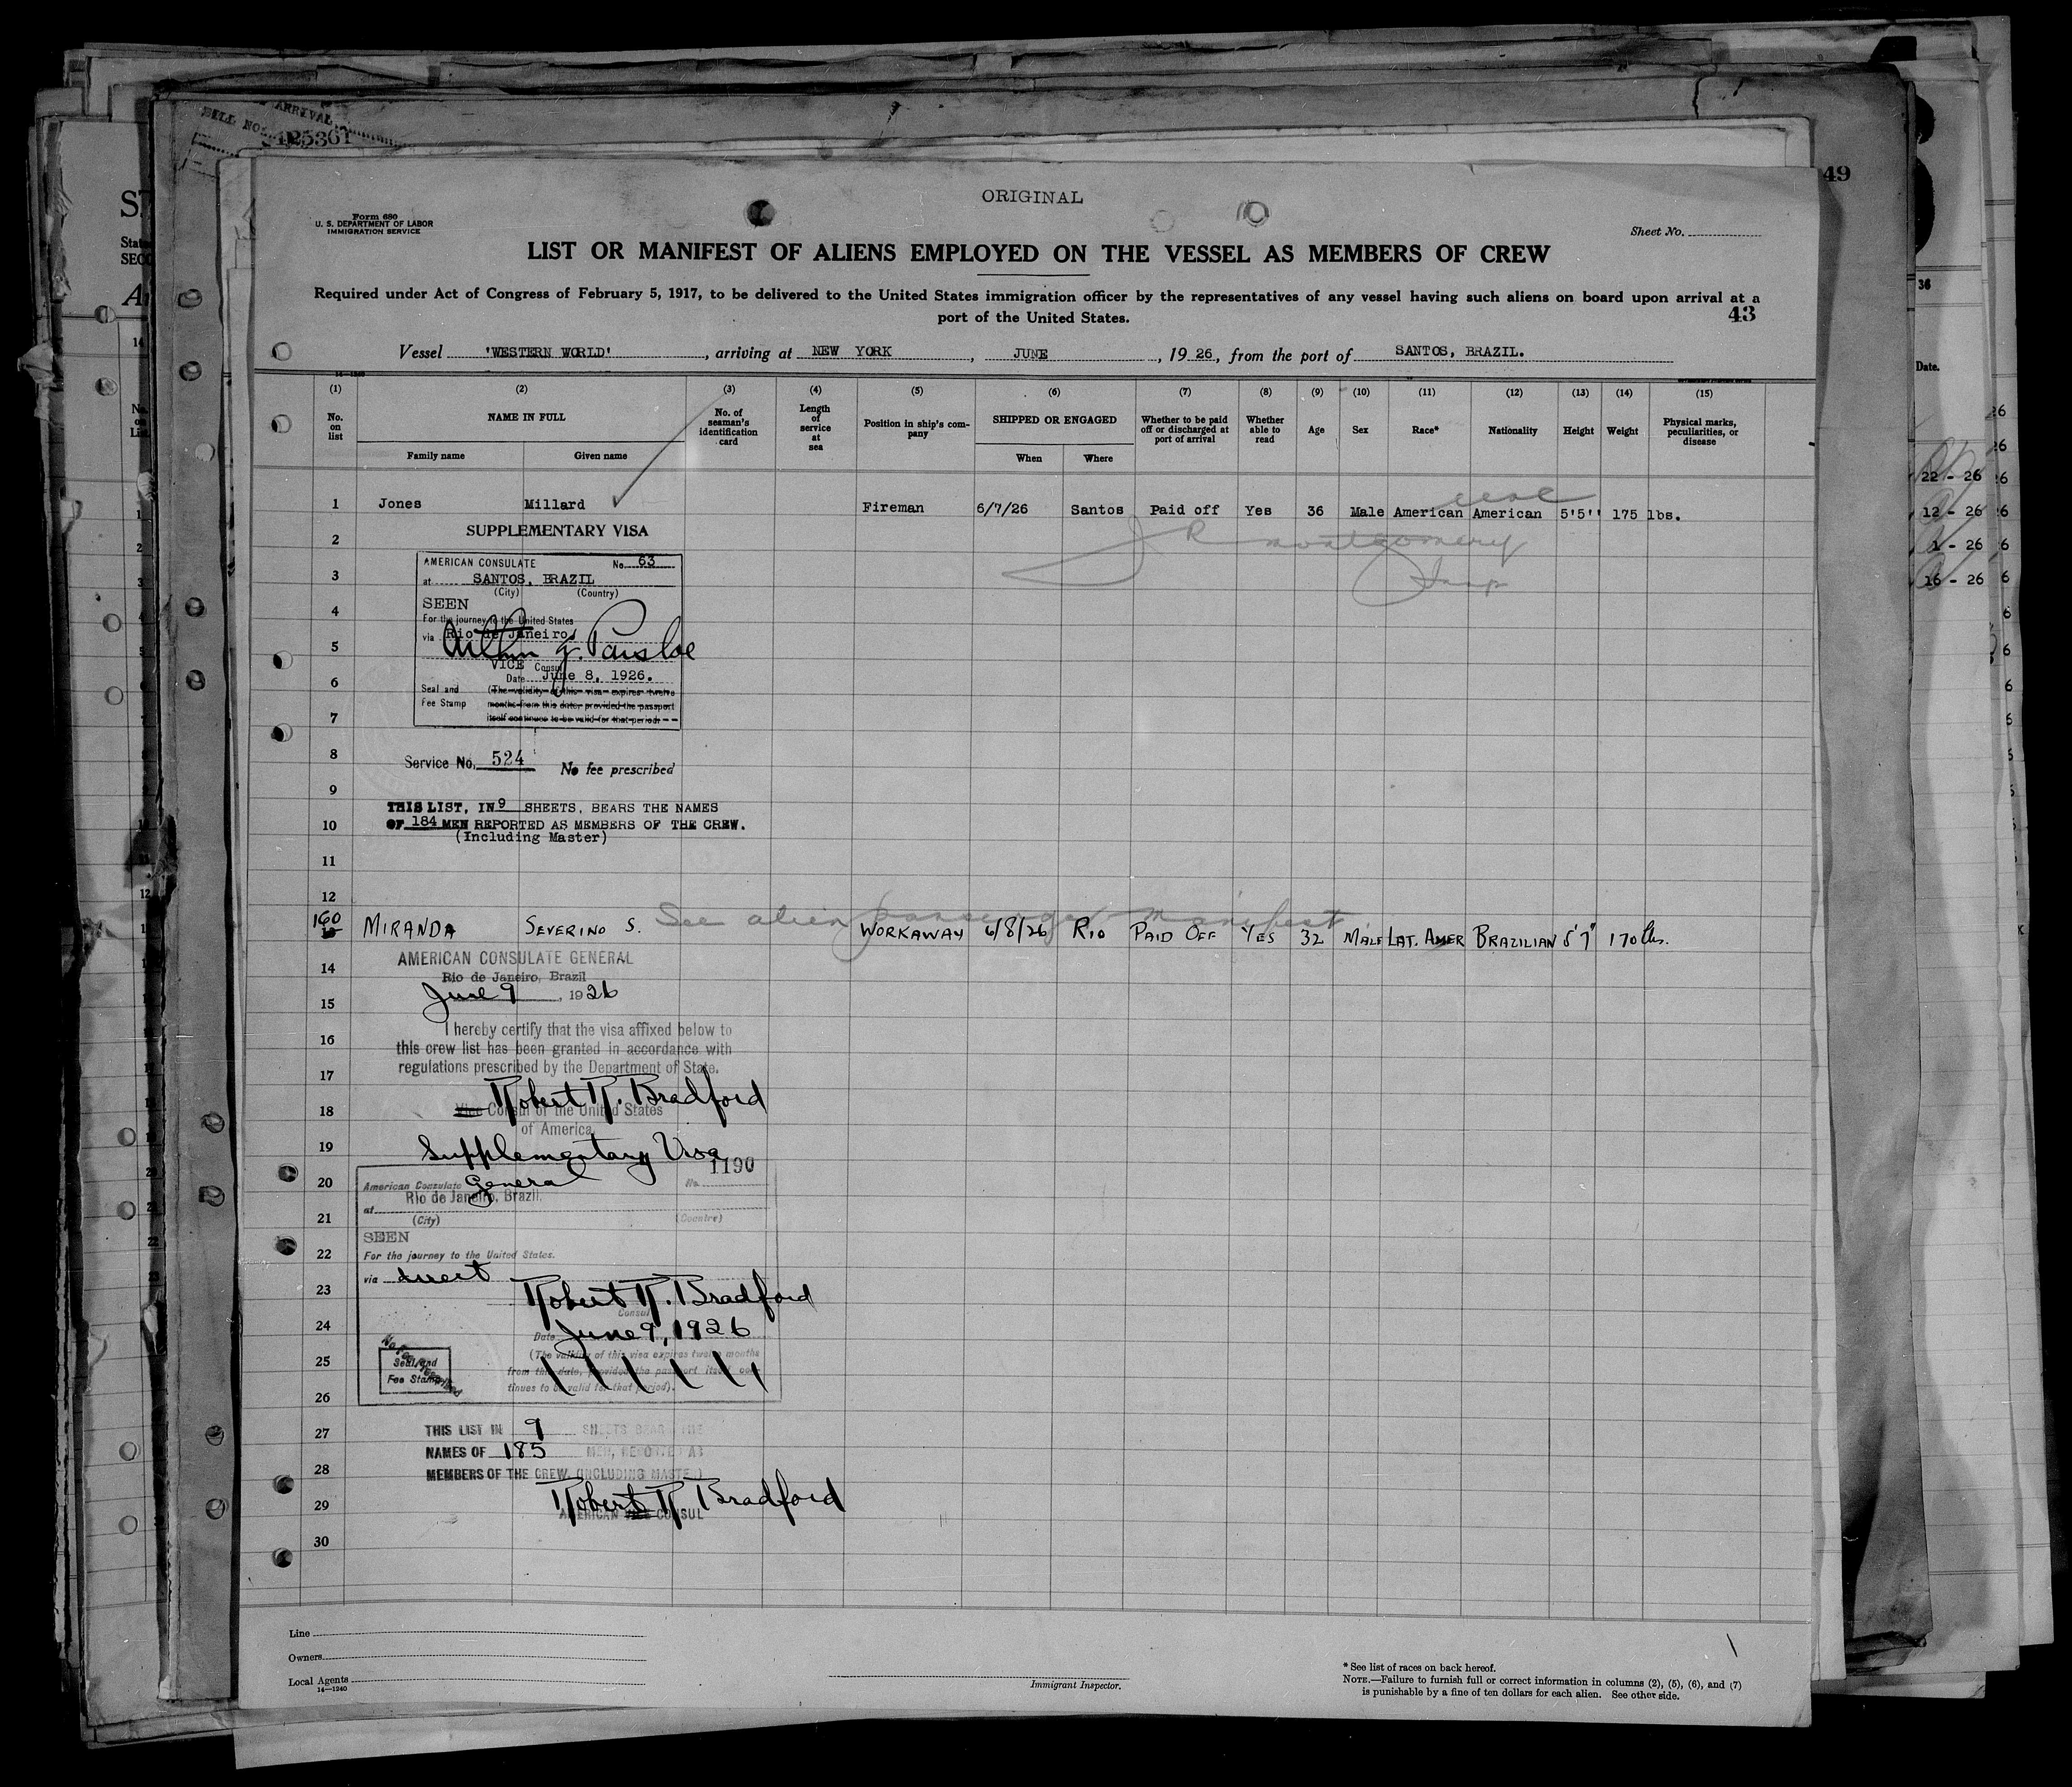 BILL NO. ARRIVAL
125361
49
ORIGINAL
Form 680
U. S. DEPARTMENT OF LABOR
IMMIGRATION SERVICE
Sheet No.
LIST OR MANIFEST OF ALIENS EMPLOYED ON THE VESSEL AS MEMBERS OF CREW
Required under Act of Congress of February 5, 1917, to be delivered to the United States immigration officer by the representatives of any vessel having such aliens on board upon arrival at a
port of the United States.
43
Vessel 'WESTERN WORLD', arriving at NEW YORK, JUNE, 1926, from the port of SANTOS, BRAZIL.
(1) (2) (3) (4) (5) (6) (7) (8) (9) (10) (11) (12) (13) (14) (15)
No. on list NAME IN FULL No. of seaman's identification card Length of service at sea Position in ship's company SHIPPED OR ENGAGED Whether to be paid off or discharged at port of arrival Whether able to read Age Sex Race* Nationality Height Weight Physical marks, peculiarities, or disease
Family name Given name When Where
1 Jones Millard Fireman 6/7/26 Santos Paid off Yes 36 Male American American 5'5'' 175 lbs.
J R Montgomery
Insp
SUPPLEMENTARY VISA
2
AMERICAN CONSULATE No. 63
3 at SANTOS, BRAZIL
(City) (Country)
4 SEEN
For the journey to the United States
via Rio de Janeiro
5
VICE Consul
6 Date June 8, 1926.
Seal and Fee Stamp (The validity of this visa expires twelve
months from this date, provided the passport
7 itself continues to be valid for that period.
8 Service No. 524 No fee prescribed
9
THIS LIST, IN 9 SHEETS, BEARS THE NAMES
10 OF 184 MEN REPORTED AS MEMBERS OF THE CREW.
(Including Master)
11
12
See alien passenger manifest
160 MIRANDA SEVERINO S. WORKAWAY 6/8/26 RIO PAID OFF YES 32 MALE LAT. AMER BRAZILIAN 5'7" 170 lbs.
AMERICAN CONSULATE GENERAL
14 Rio de Janeiro, Brazil
15 June 9, 1926
I hereby certify that the visa affixed below to
16 this crew list has been granted in accordance with
regulations prescribed by the Department of State.
17 Robert R. Bradford
18 Vice Consul of the United States
of America.
19 Supplementary Visa
1190
20 American Consulate General No.
Rio de Janeiro, Brazil.
21 at
(City) (Country)
SEEN
22 For the journey to the United States.
via direct
23 Robert R. Bradford
Consul
24 Date June 9, 1926
25 (The validity of this visa expires twelve months
from this date, provided the passport itself con-
tinues to be valid for that period).
Seal and
Fee Stamp
26
27 THIS LIST IN 9 SHEETS BEARS THE
NAMES OF 185 MEN, REPORTED AS
28 MEMBERS OF THE CREW, (INCLUDING MASTER)
29 Robert R. Bradford
AMERICAN VICE CONSUL
30
Line
Owners
Local Agents
14—1240
Immigrant Inspector.
* See list of races on back hereof.
NOTE.—Failure to furnish full or correct information in columns (2), (5), (6), and (7)
is punishable by a fine of ten dollars for each alien. See other side.
36
Date.
22 - 26
12 - 26
1 - 26
16 - 26